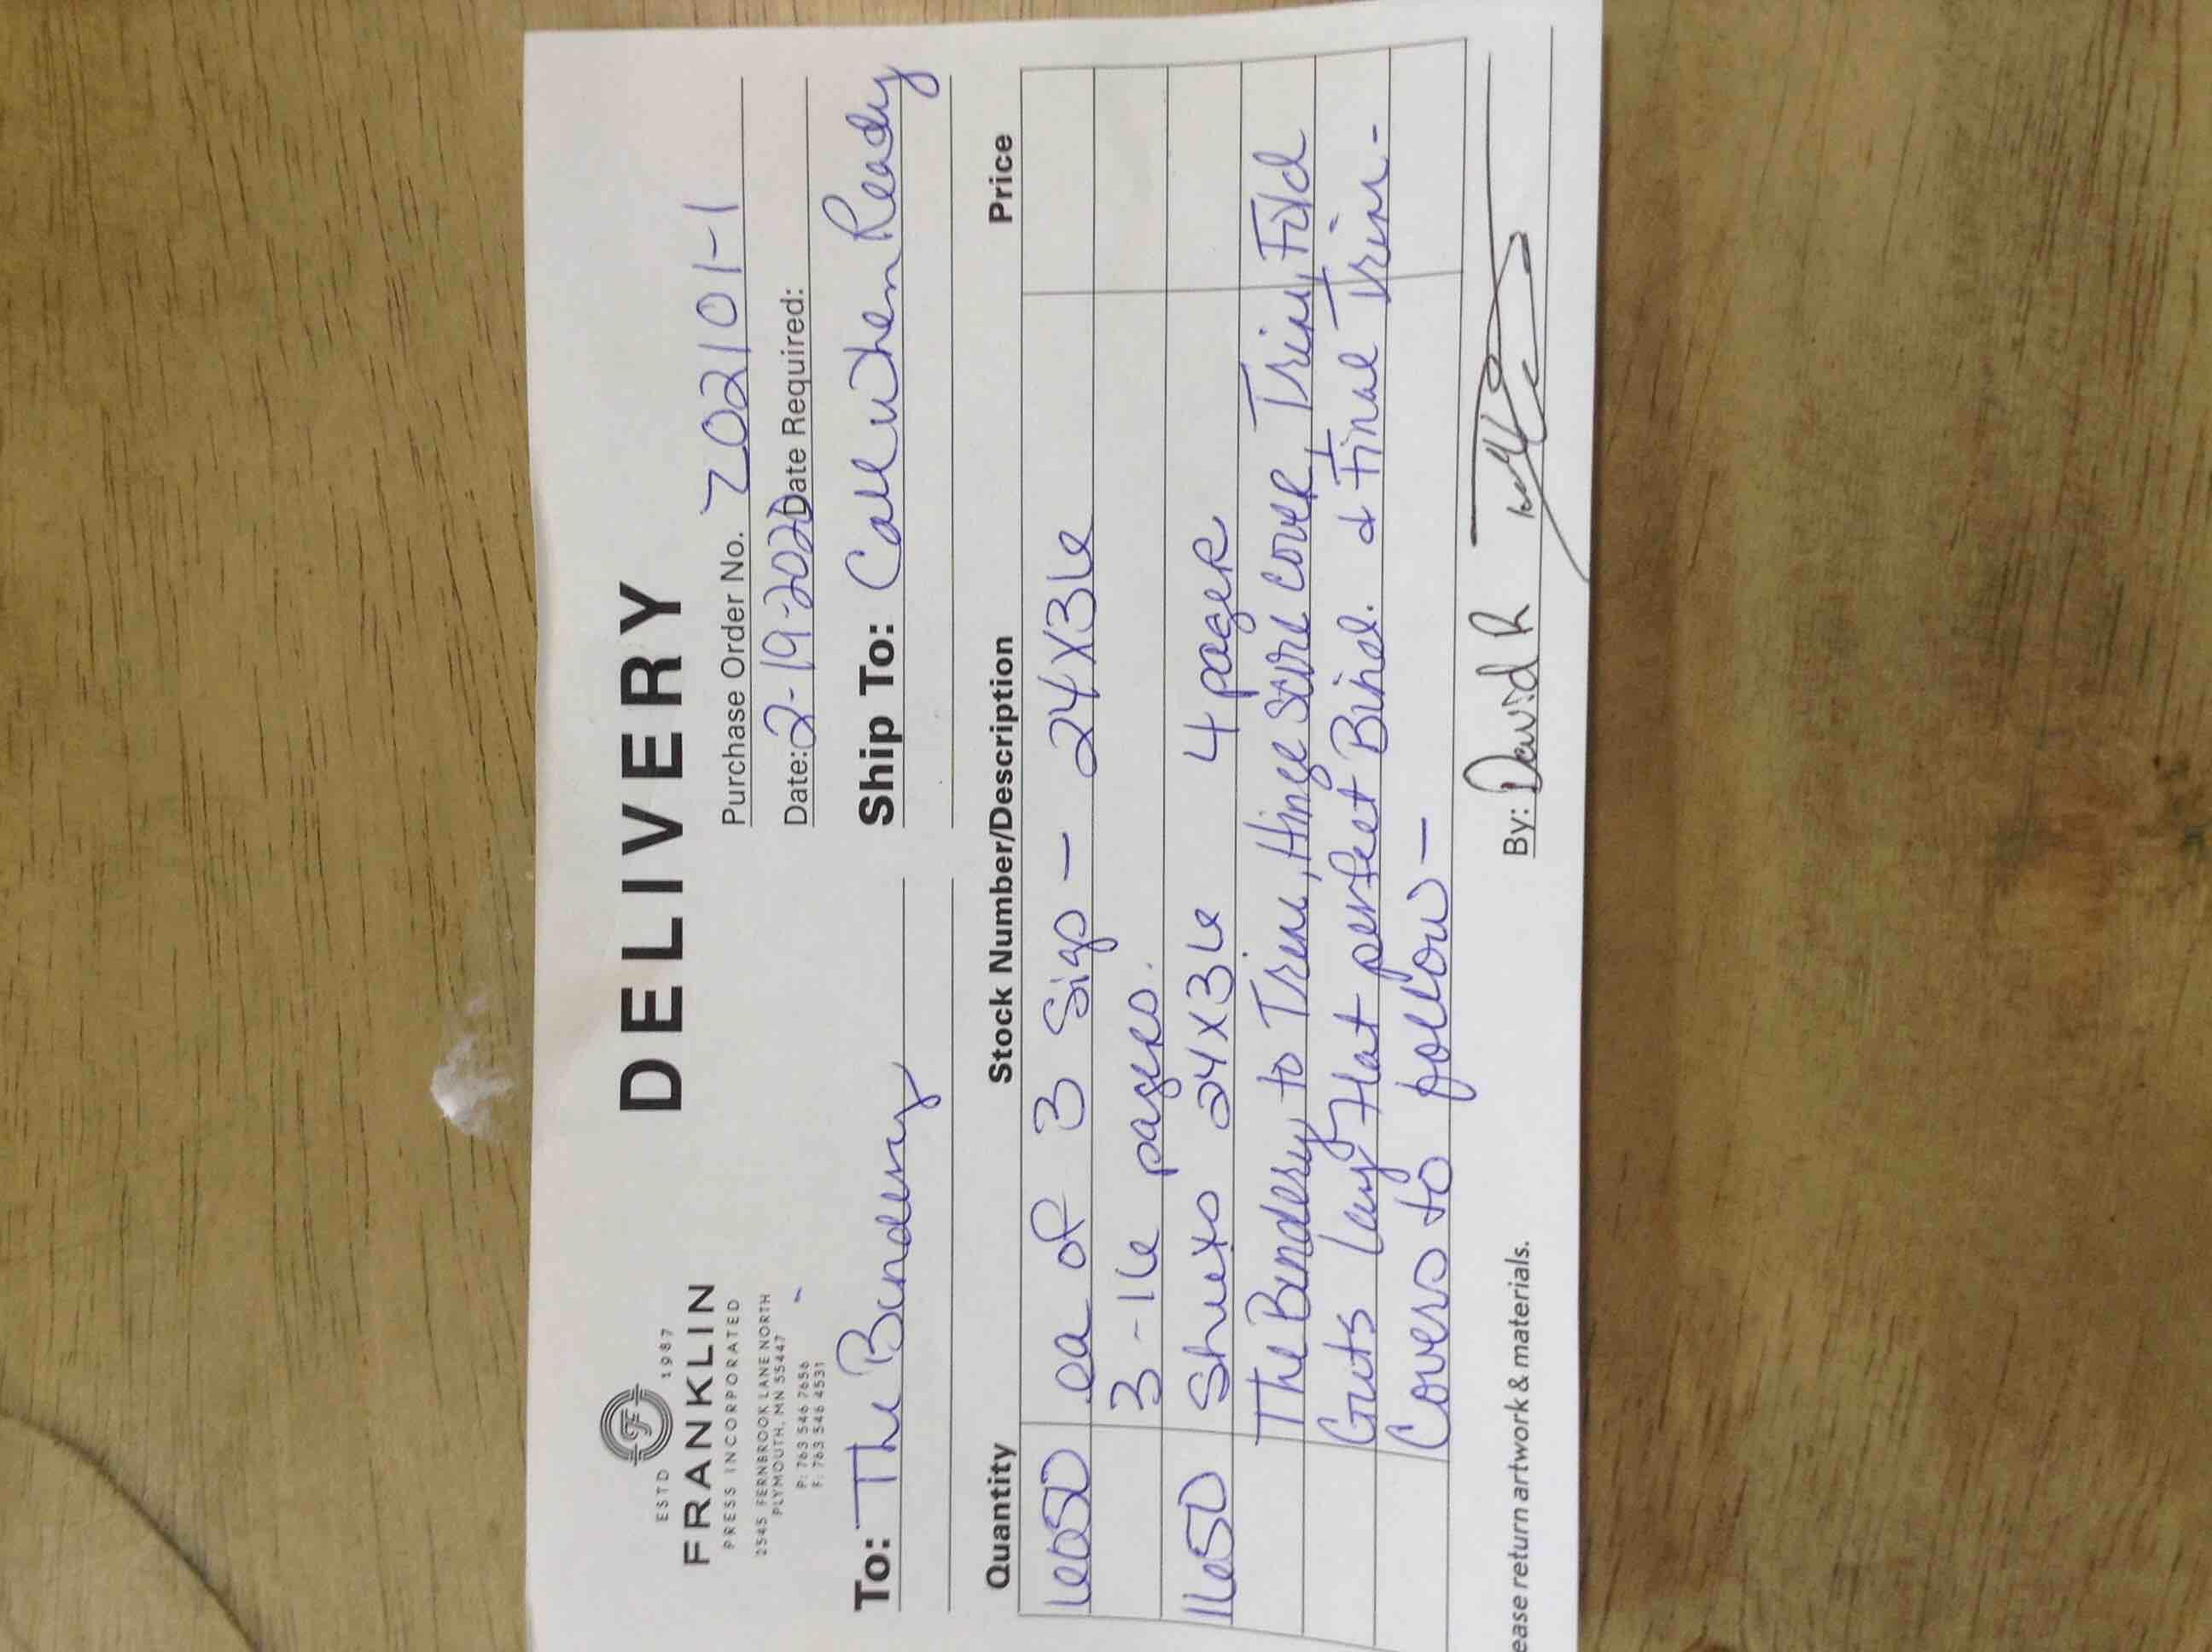 ESTD 1987
FRANKLIN
PRESS INCORPORATED
2545 FERNBROOK LANE NORTH
PLYMOUTH, MN 55447
P: 763 546 7656
F: 763 546 4531
DELIVERY
Purchase Order No. 202101-1
Date: 2-19-2020 Date Required:
To: The Bindery
Ship To: Call when Ready
Quantity Stock Number/Description Price
1650 ea of 3 Sigs - 24X36
3-16 pages.
1650 Sheets 24X36 4 pager
The Bindery to Trim, Hinge score cover, Trim, Fold
Guts Lay Flat perfect Bind. & Final Trim-
Covers to follow-
ease return artwork & materials.
By: David R